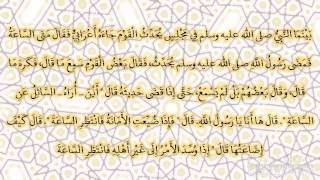 بَيْنَمَا النَّبِيُّ صلى الله عليه وسلم فِي مَجْلِسٍ يُحَدِّثُ الْقَوْمَ جَاءَهُ أَعْرَابِيٌّ فَقَالَ مَتَى السَّاعَةُ
فَمَضَى رَسُولُ اللَّهِ صلى الله عليه وسلم يُحَدِّثُ، فَقَالَ بَعْضُ الْقَوْمِ سَمِعَ مَا قَالَ، فَكَرِهَ مَا
قَالَ، وَقَالَ بَعْضُهُمْ بَلْ لَمْ يَسْمَعْ، حَتَّى إِذَا قَضَى حَدِيثَهُ قَالَ " أَيْنَ ـ أُرَاهُ ـ السَّائِلُ عَنِ
السَّاعَةِ ". قَالَ هَا أَنَا يَا رَسُولَ اللَّهِ. قَالَ " فَإِذَا ضُيِّعَتِ الأَمَانَةُ فَانْتَظِرِ السَّاعَةَ ". قَالَ كَيْفَ
إِضَاعَتُهَا قَالَ " إِذَا وُسِّدَ الأَمْرُ إِلَى غَيْرِ أَهْلِهِ فَانْتَظِرِ السَّاعَةَ